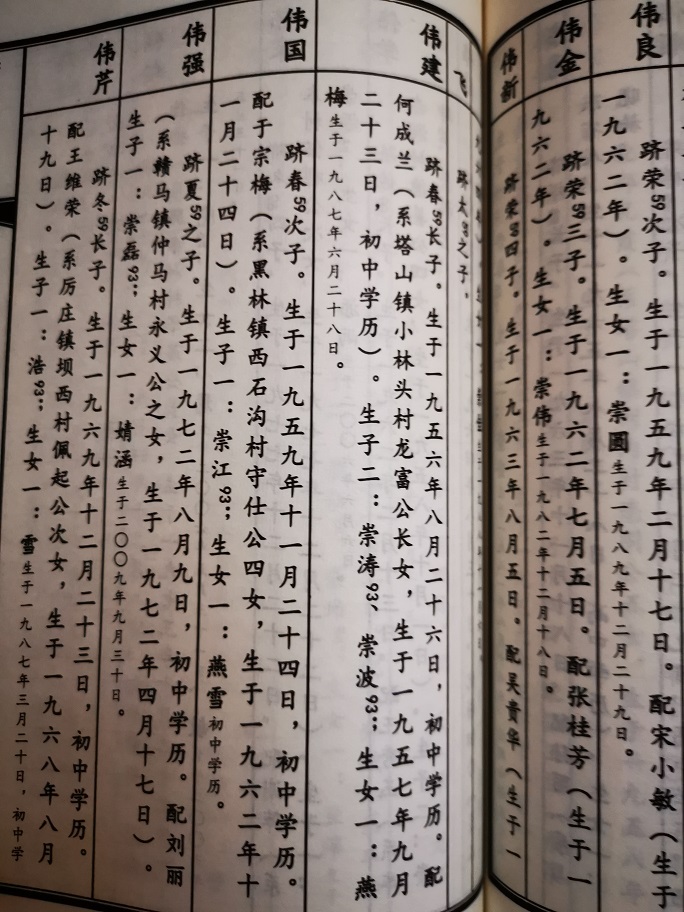 伟良
跻荣59次子。生于一九五九年二月十七日。配宋小敏（生于
一九六二年）。生女一：崇圆生于一九八九年十二月二十九日。
伟金
跻荣59三子。生于一九六二年七月五日。配张桂芳（生于一
九六二年）。生女一：崇伟生于一九八二年十二月十八日。
伟新
跻荣59四子。生于一九六三年八月五日。配吴贵华（生于一
飞
跻太59之子，
伟建
跻春59长子。生于一九五六年八月二十六日，初中学历。配
何成兰（系塔山镇小林头村龙富公长女，生于一九五七年九月
二十三日，初中学历）。生子二：崇涛93、崇波93；生女一：燕
梅生于一九八七年六月二十八日。
伟国
跻春59次子。生于一九五九年十一月二十四日，初中学历。
配于宗梅（系黑林镇西石沟村守仕公四女，生于一九六二年十
一月二十四日）。生子一：崇江93；生女一：燕雪初中学历。
伟强
跻夏59之子。生于一九七二年八月九日，初中学历。配刘丽
（系赣马镇仲马村永义公之女，生于一九七二年四月十七日）。
生子一：崇磊93；生女一：婧涵生于二〇〇九年九月三十日。
伟芹
跻冬59长子。生于一九六九年十二月二十三日，初中学历。
配王维荣（系厉庄镇坝西村佩起公次女，生于一九六八年八月
十九日）。生子一：浩93；生女一：雪生于一九八七年三月二十日，初中学